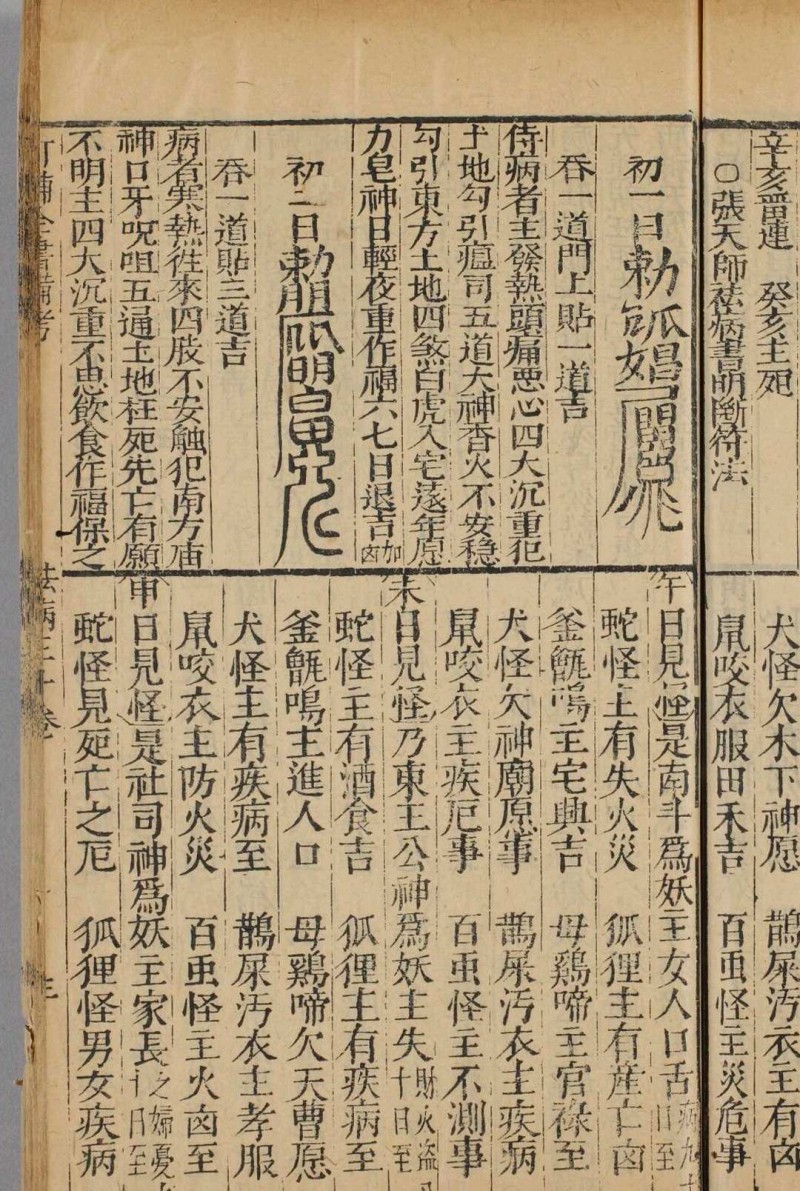 辛亥當連　癸亥主死
○張天師祛病書明斷符法
初一日勅
吞一道門上貼一道吉
侍病者主發熱頭痛惡心四大沉重犯
土地勾引瘟司五道大神香火不安穩
勾引東方土地四煞白虎入宅遠年愿
力皂神日輕夜重作福六七日退吉加凶
初二日勅
吞一道貼三道吉
病者寒熱徃來四肢不安觸犯南方庙
神口牙呪咀五通土地枉死先亡有願
不明主四大沉重不思飲食作福保之
犬怪欠木下神愿　鵲屎汚衣主有凶
鼠咬衣服田禾吉　百虫怪主災危事
午日見怪是南斗爲妖主女人口舌
蛇怪主有失火災　狐狸主有産亡凶
釜甑鳴主宅興吉　母鷄啼主官祿至
犬怪欠神廟愿事　鵲屎汚衣主疾病
鼠咬衣主疾厄事　百虫怪主不測事
未日見怪乃東王公神爲妖主失財火盗十日至
蛇怪主有酒食吉　狐狸主有疾病至
釜甑鳴主進人口　母鷄啼欠天曹愿
犬怪主有疾病至　鵲屎汚衣主孝服
鼠咬衣主防火災　百虫怪主火凶至
申日見怪是社司神爲妖主家長之婦憂十日至
蛇怪見死亡之厄　狐狸怪男女疾病